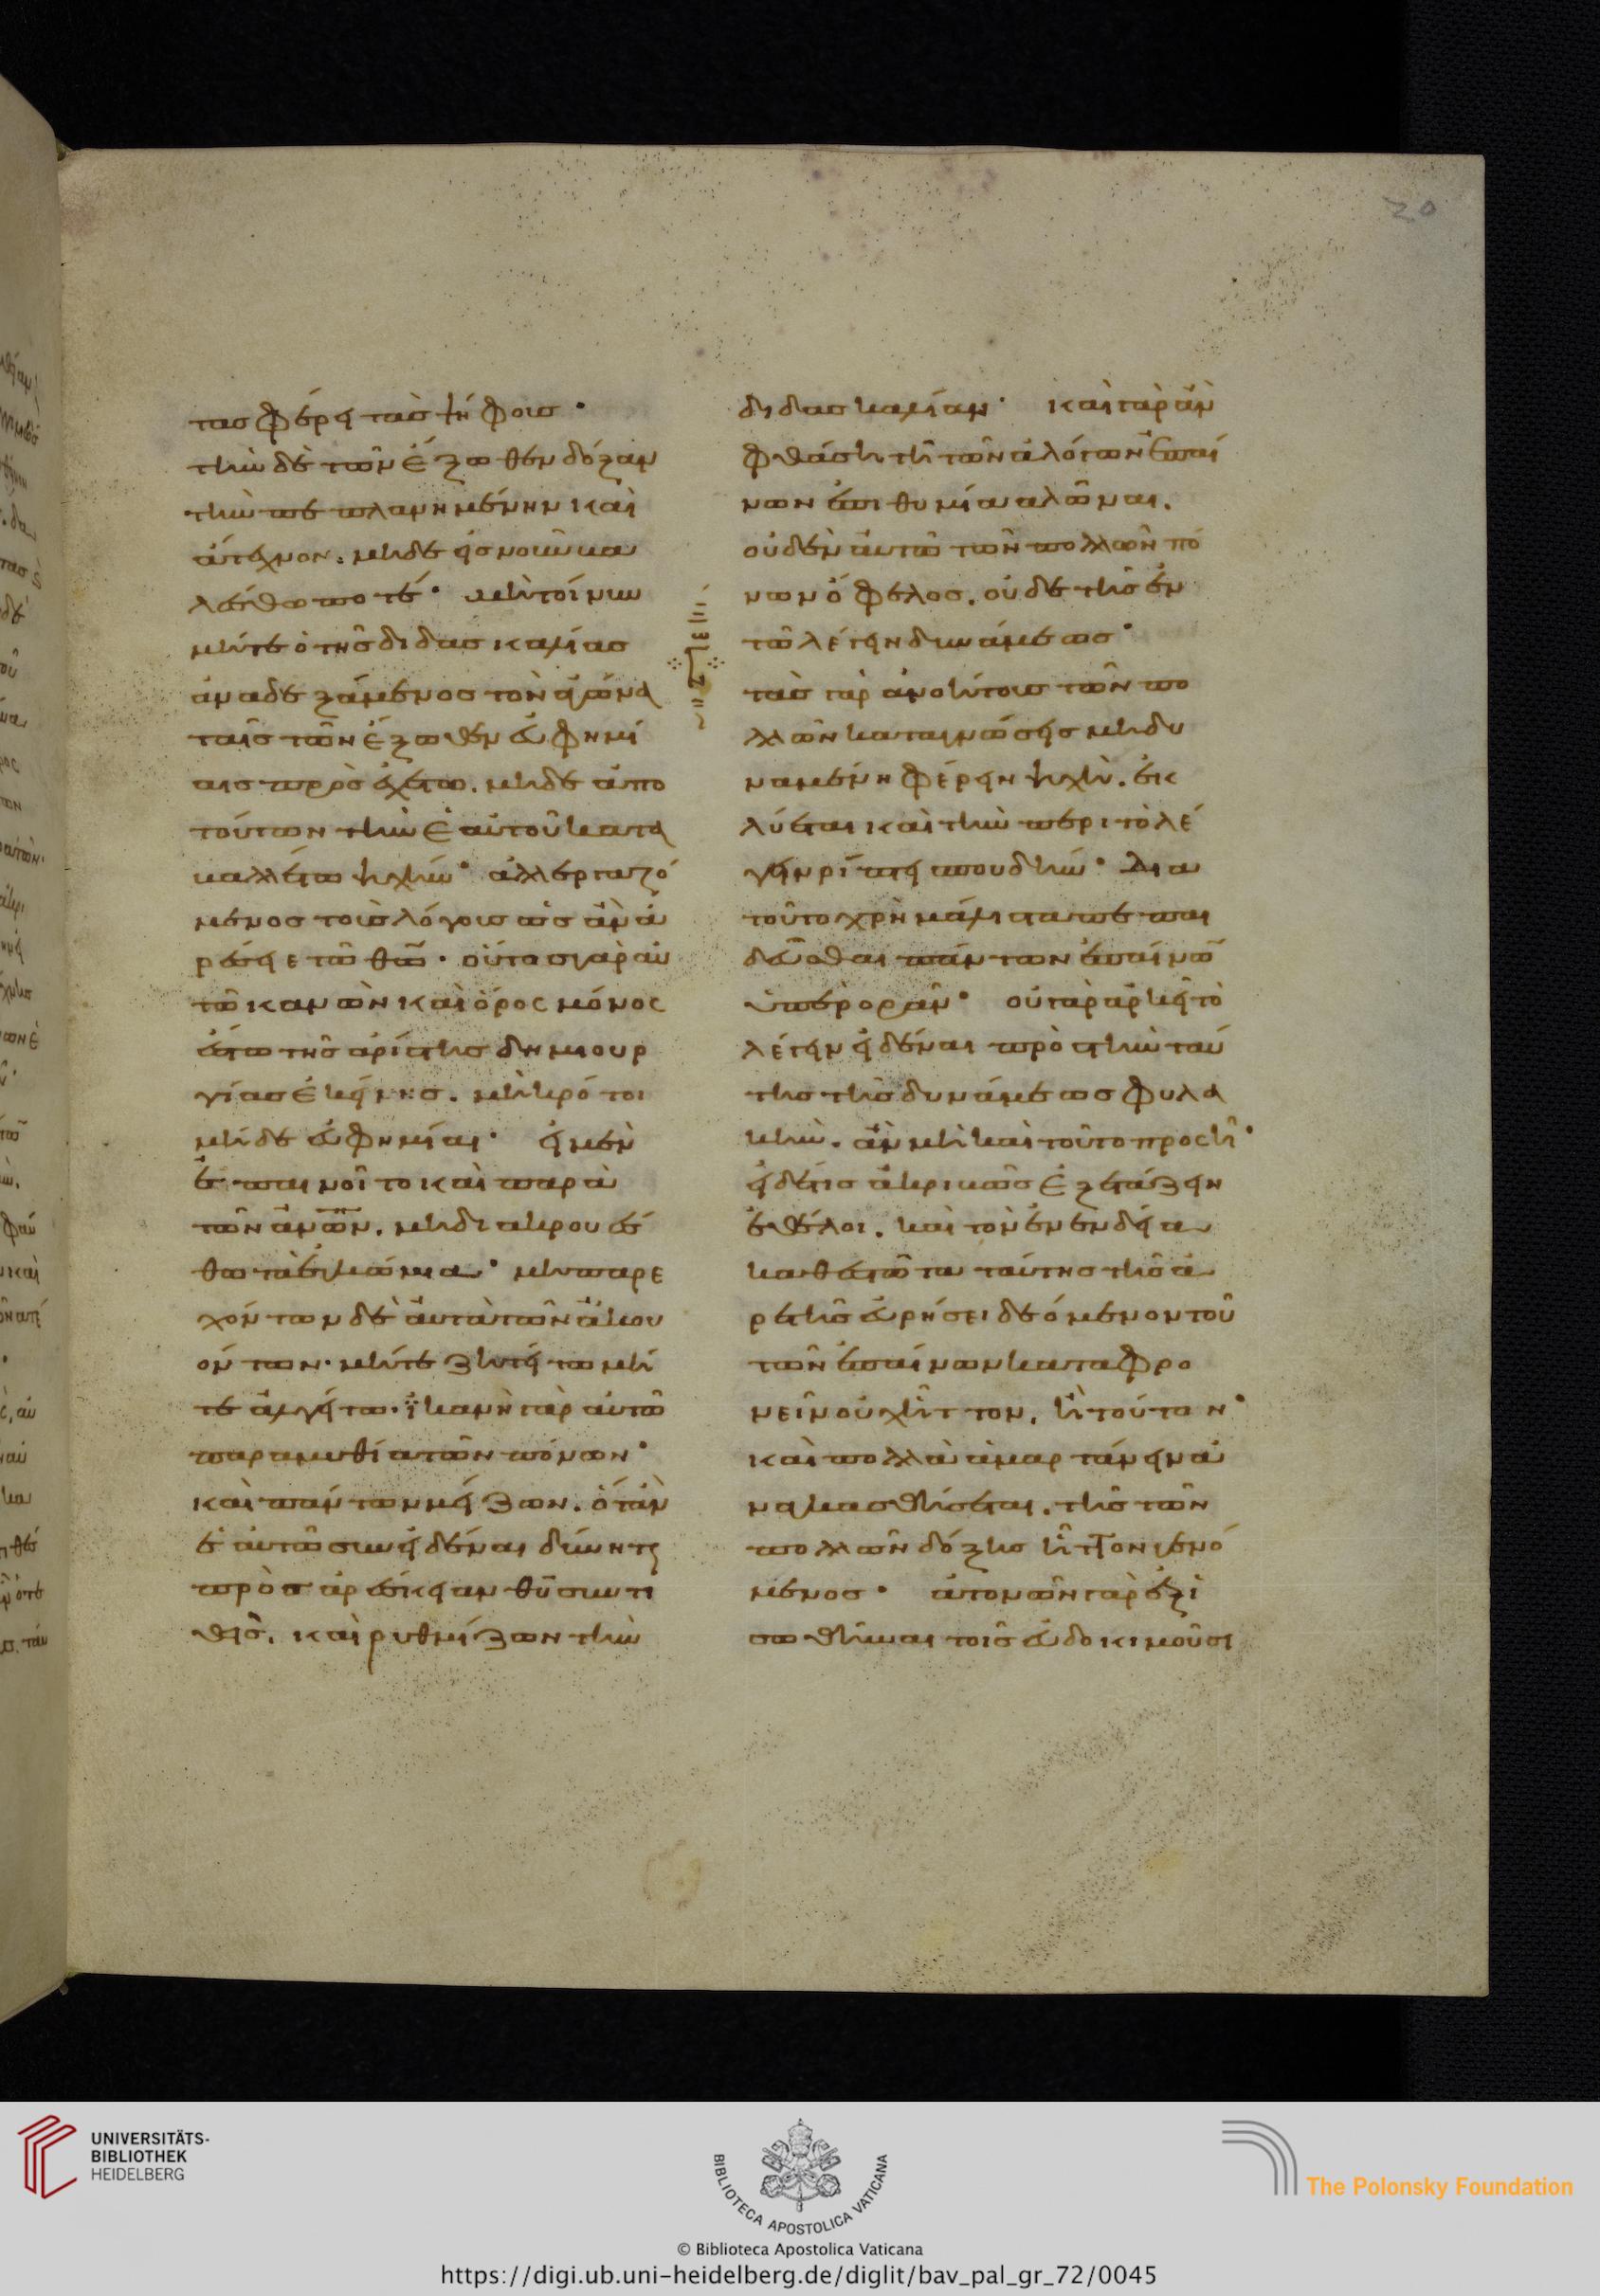 τας φέρει τὰς ψήφους·
τὴν δὲ τῶν ἔξωθεν δόξαν
τὴν πεπλανημένην καὶ
ἄτεχνον. μηδὲ εἰς νοῦν βα
λέσθω ποτέ· μὴ τοίνυν
μήτε ὁ τῆς διδασκαλίας
ἀναδεξάμενος τὸν ἀγῶνα
ταῖς τῶν ἔξωθεν εὐφημί
αις προσεχέτω. μηδὲ ἀπὸ
τούτων τὴν ἑαυτοῦ κατα
βαλλέτω ψυχήν· ἀλλ ἐργαζό
μενος τοὺς λόγους ὡς ἂν ἀ
ρέσειε τῶ θῶ. οὗτος γὰρ αὐ
τῶ κανὼν καὶ ὅρος μόνος
ἔστω τῆς ἀρίστης δημιουρ
γίας ἐκείνης. μὴ κρότοι
μηδὲ εὐφημίαι· εἰ μὲν
ἐπαινοῖτο καὶ παρὰ
τῶν ἀνων. μὴ διακρουέ
σθω τὰ ἐγκώμια· μὴ παρε
χόντων δὲ αὐτὰ τῶν ἀκου
όντων. μήτε ζητείτω μή
τε ἀλγείτω. ἱκανὴ γὰρ αὐτῶ
παραμυθία τῶν πόνων·
καὶ πάντων μείζων. ὅταν
ἑαυτῶ συνειδέναι δύνηται
πρὸς ἀρέσκειαν θυ συντι
θεὶς. καὶ ρυθμίζων τὴν
διδασκαλίαν· καὶ γὰρ ἂν
φθάση τῆ τῶν ἀλόγων ἐπαί
νων ἐπιθυμία ἁλῶναι.
οὐδὲν αὐτῶ τῶν πολλῶν πό
νων ὄφελος. οὐδὲ τῆς ἐν
τῶ λέγειν δυνάμεως·
τὰς γὰρ ἀνοήτους τῶν πο
λλῶν καταγνώσεις μὴ δυ
ναμένη φέρειν ψυχὴ. ἐκ
λύεται καὶ τὴν περὶ τὸ λέ
γειν ρίπτει σπουδήν· διὰ
τοῦτο χρὴ μάλιστα πεπαι
δεῦσθαι πάντων ἐπαίνων
ὑπερορᾶν· οὐ γὰρ ἀρκεῖ τὸ
λέγειν εἰδέναι πρὸς τὴν ταύ
της τῆς δυνάμεως φυλα
κὴν. ἂν μὴ καὶ τοῦτο προσῆ·
εἰ δέ τις ἀκριβῶς ἐξετάζειν
ἐθέλοι. καὶ τὸν ἐν ἐνδεία
καθεστῶτα ταύτης τῆς ἀ
ρετῆς εὑρήσει δεόμενον τοῦ
τῶν ἐπαίνων καταφρο
νεῖν οὐχ ἧττον. ἢ τοῦτον·
καὶ πολλὰ ἁμαρτάνειν ἀ
ναγκασθήσεται. τῆς τῶν
πολλῶν δόξης ἥττων γενό
μενος· ἀτονῶν γὰρ ἐξι
σωθῆναι τοῖς εὐδοκιμοῦσι
20
UNIVERSITÄTS-
BIBLIOTHEK
HEIDELBERG
BIBLIOTECA APOSTOLICA VATICANA
The Polonsky Foundation
© Biblioteca Apostolica Vaticana
https://digi.ub.uni-heidelberg.de/diglit/bav_pal_gr_72/0045